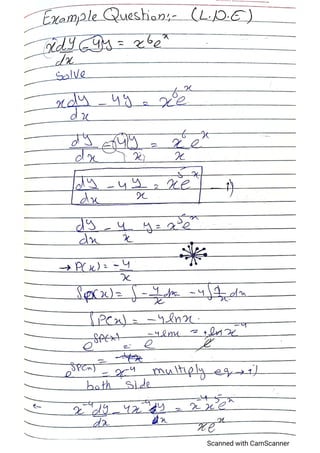 Example Question:- (L.D.E)
x dy/dx - 4y = x⁶eˣ
Solve
x dy/dx - 4y = x⁶eˣ
dy/dx - 4y/x = x⁶eˣ/x
dy/dx - 4y/x = x⁵eˣ — i)
dy/dx - 4/x y = x⁵eˣ
→ P(x) = -4/x
∫P(x) = ∫-4/x dx = -4∫1/x dx
∫P(x) = -4lnx.
e^∫P(x) = e^-4lnx = e^lnx⁻⁴
e^∫P(x) = x⁻⁴ multiply eq → i)
both side
x⁻⁴dy/dx - 4x⁻⁴y/x = x⁻⁴x⁵eˣ
xeˣ
Scanned with CamScanner